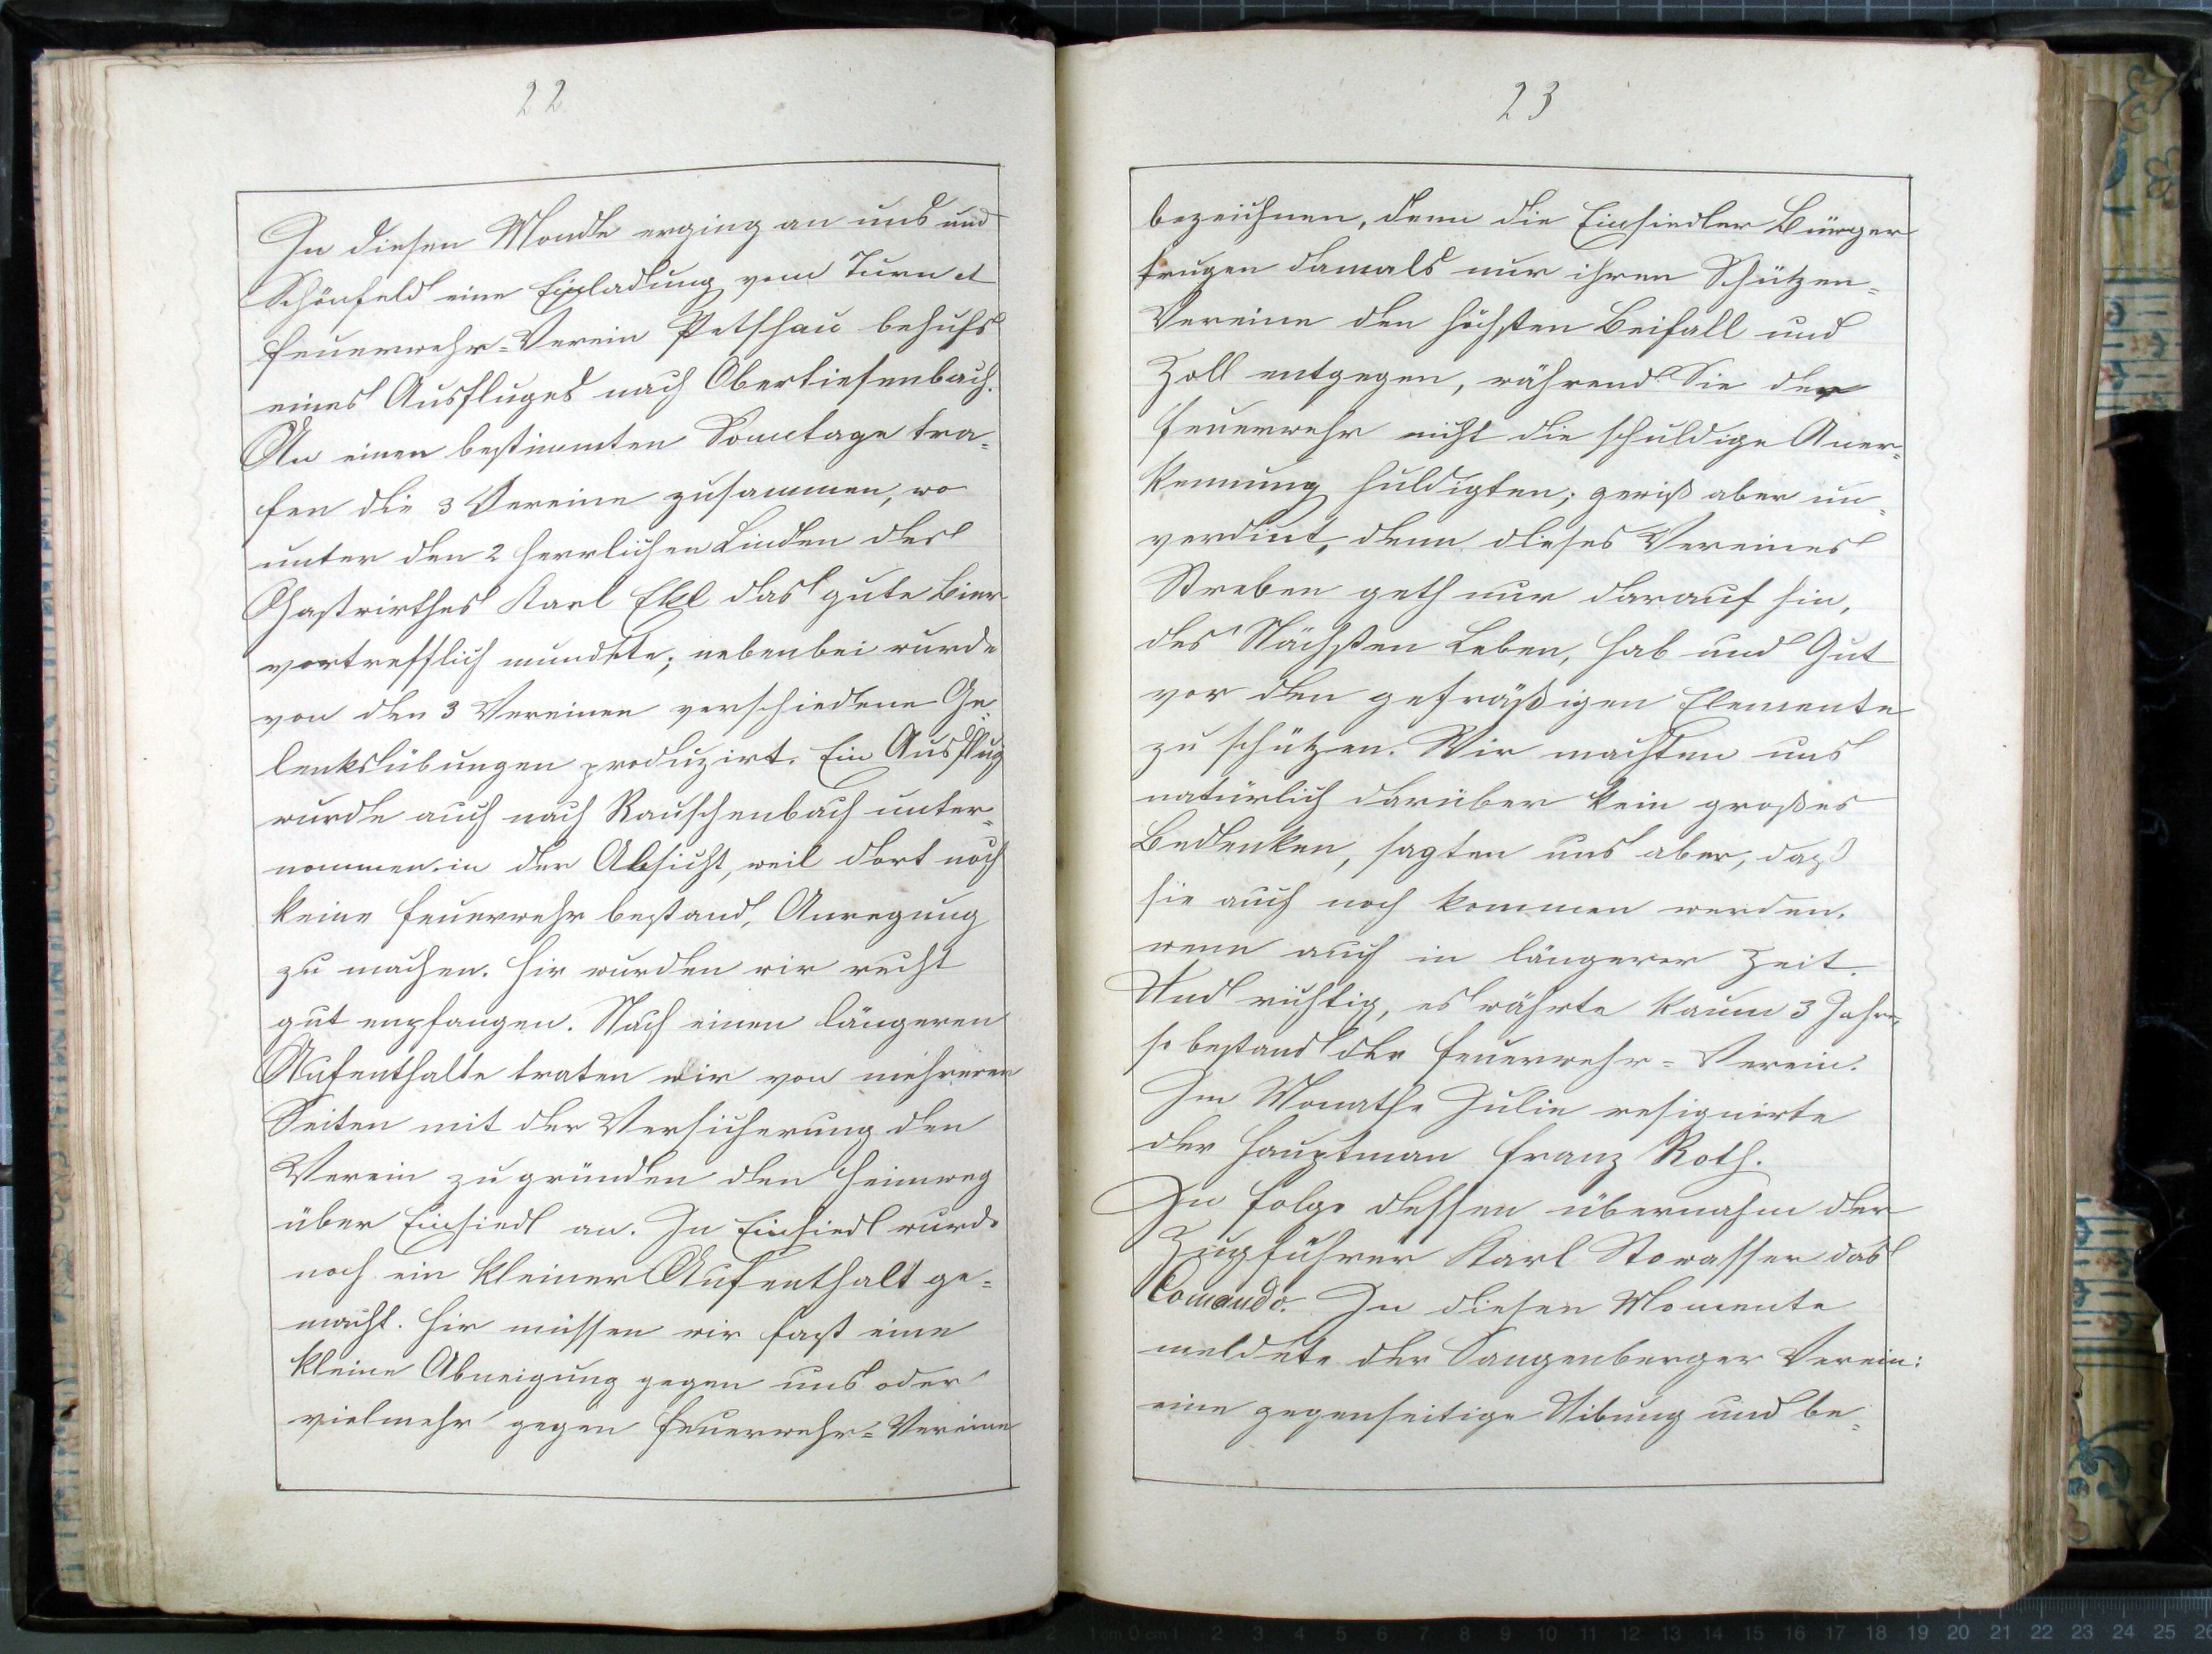 22
In diesen Monde erging an uns und
Schönfeld eine Einladung vom Turn et
Feuerwehr=Verein Petschau behufs
eines Ausfluges nach Obertiefenbach.
An einen bestimmten Sonntage tra=
fen die 3 Vereine zusammen, wo
unter den 2 herrlichen Linden des
Gastwirthes Karl Ekl das gute Bier
vortrefflich mundete; nebenbei wurde
von den 3 Vereinen verschiedene Ge=
lenksübungen produzirt. Ein Ausflug
wurde auch nach Rauschenbach unter=
nommen in der Absicht, weil dort noch
keine Feuerwehr bestand, Anregung
zu machen. Hir wurden wir recht
gut enpfangen. Nach einen längeren
Aufenthalte traten wir von mehreren
Seiten mit der Versicherung den
Verein zu gründen den Heimweg
über Einsiedl an. In Einsiedl wurde
noch ein kleiner Aufenthalt ge=
macht. Hir müssen wir fast eine
kleine Abneigung gegen uns oder
vielmehr gegen Feuerwehr=Vereine
23
bezeichnen, denn die Einsiedler Bürger
trugen damals nur ihren Schützen=
Vereine den höchsten Beifall und
Zoll entgegen, während Sie der
Feuerwehr nicht die schuldige Aner=
kennung huldigten; gewiß aber un=
verdint, denn dieses Vereines
Streben geth nur darauf hin,
des Nächsten Leben, Hab und Gut
vor den gefräßigen Elemente
zu schützen. Wir machten uns
natürlich darüber kein großes
Bedenken, sagten uns aber, daß
sie auch noch kommen werden,
wenn auch in längerer Zeit.
Und richtig, es währte kaum 3 Jahre,
so bestand der Feuerwehr=Verein.
Im Monathe Julie resignirte
der Hauptman Franz Roth.
In folge dessen übernahm der
Zugführer Karl Stowasser das
Comando. In diesen Momente
meldete der Sangenberger Verein:
eine gegenseitige Uibung und be=